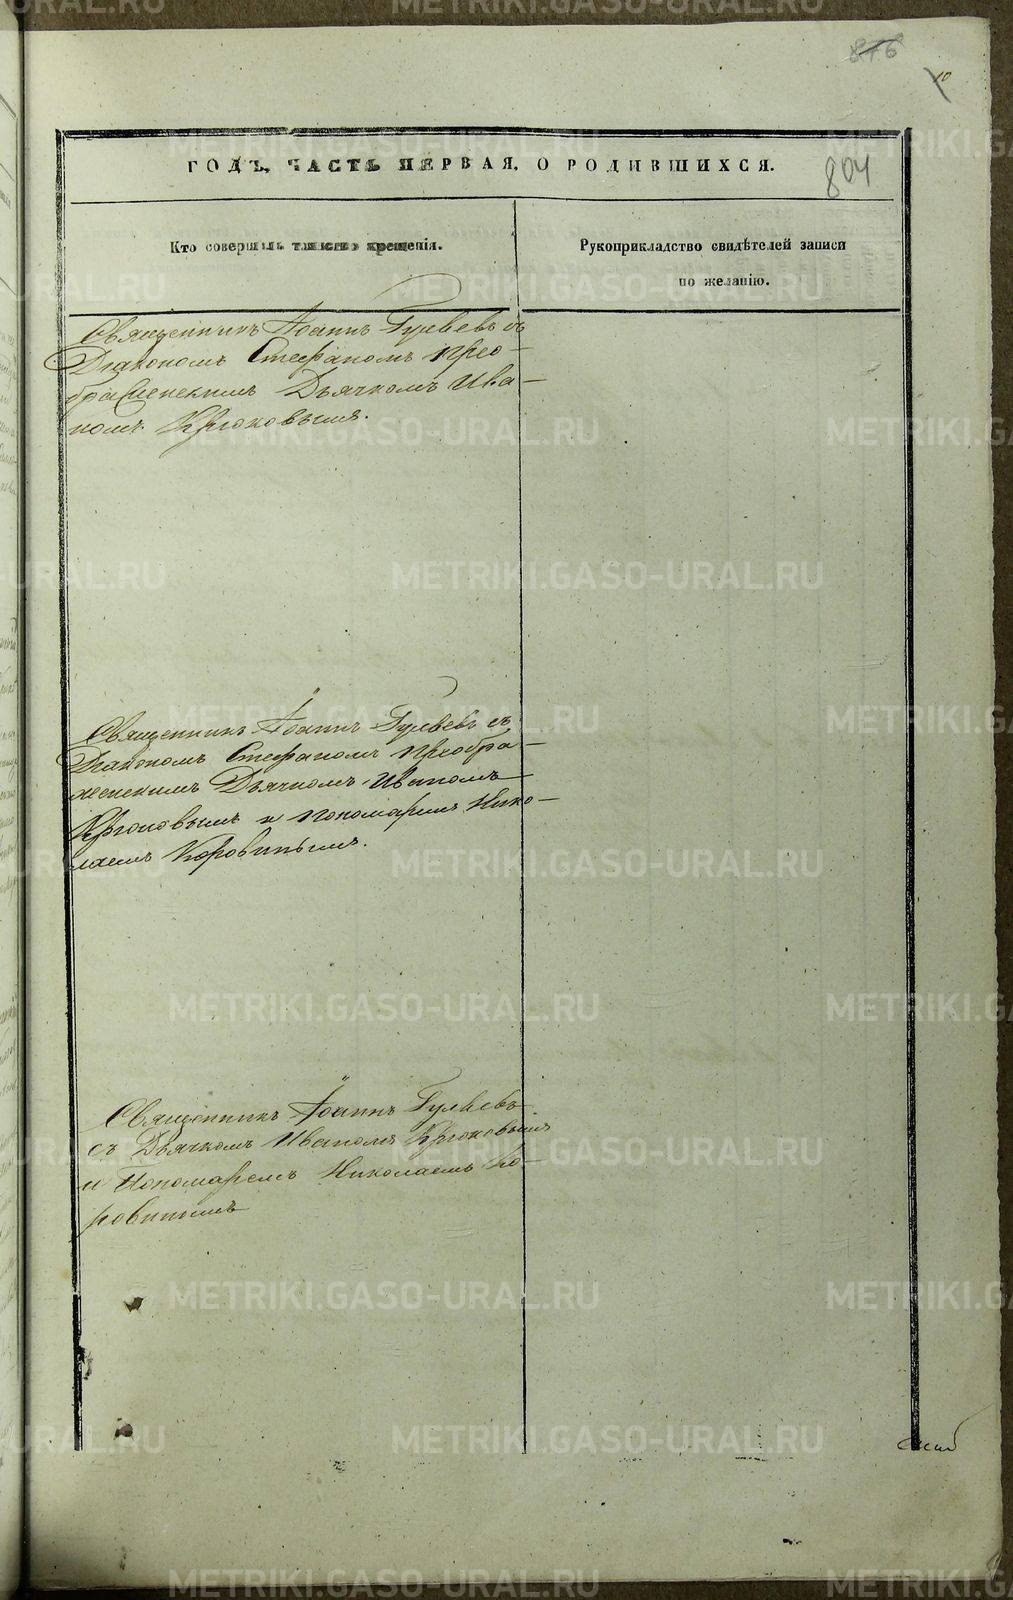 876
10
ГОДЪ, ЧАСТЬ ПЕРВАЯ, О РОДИВШИХСЯ.
804
Кто совершалъ таинство крещенія.
Рукоприкладство свидѣтелей записи
по желанію.
Священникъ Іоаннъ Гуляевъ съ
Діакономъ Стефаномъ Прео-
браженскимъ Дьячкомъ Ива-
номъ Крюковымъ.
Священникъ Іоаннъ Гуляевъ съ
Діакономъ Стефаномъ Преобра-
женскимъ Дьячкомъ Иваномъ
Крюковымъ и пономаремъ Нико-
лаемъ Коровинымъ.
Священникъ Іоаннъ Гуляевъ
съ Дьячкомъ Иваномъ Крюковымъ
и Пономаремъ Николаемъ Ко-
ровинымъ
METRIKI.GASO-URAL.RU